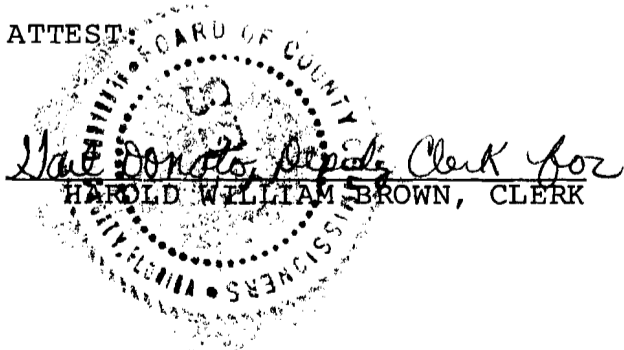 ATTEST:
BOARD OF COUNTY
COMMISSIONERS
FLORIDA
SEAL
Gail Donato, Deputy Clerk for
HAROLD WILLIAM BROWN, CLERK